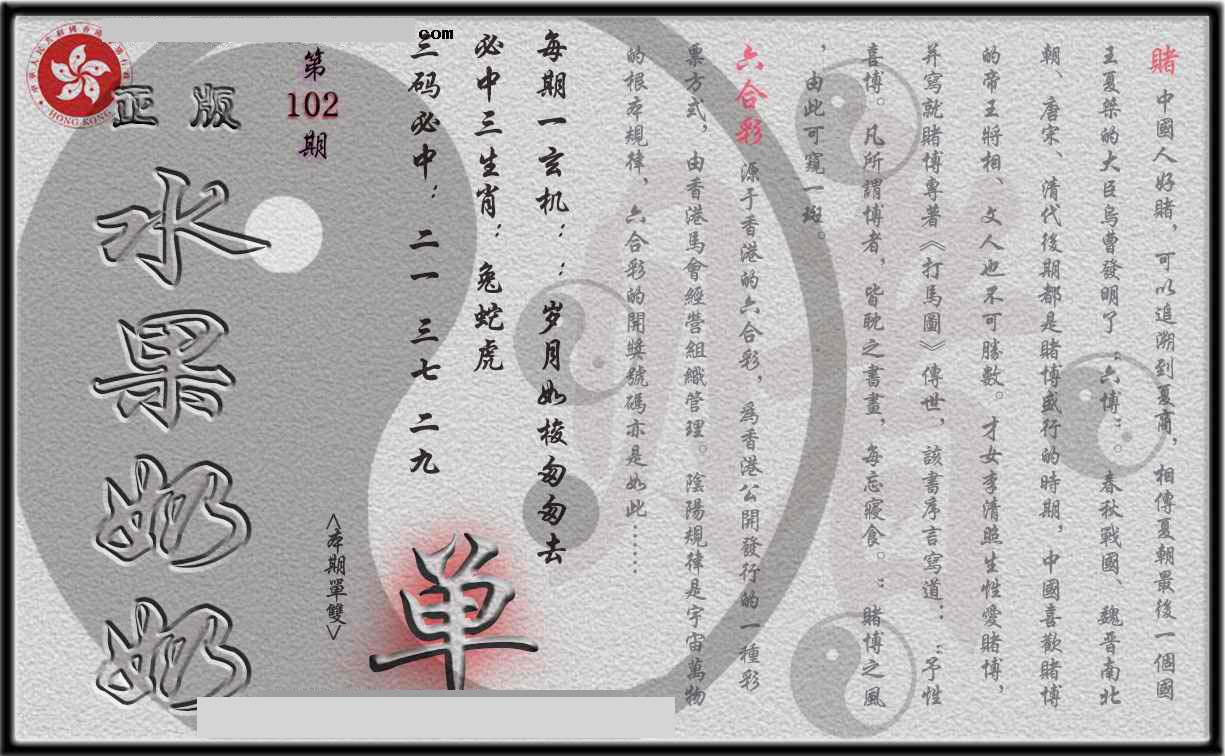 賭 中國人好賭，可以追溯到夏商，相傳夏朝最後一個國
王夏桀的大臣烏曹發明了“六博”。春秋戰國、魏晉南北
朝、唐宋、清代後期都是賭博盛行的時期，中國喜歡賭博
的帝王將相、文人也不可勝數。才女李清照生性愛賭博，
并寫就賭博專著《打馬圖》傳世，該書序言寫道：“予性
喜博。凡所謂博者，皆耽之晝，每忘寢食。”賭博之風
，由此可窺一斑。
六合彩 源于香港的六合彩，為香港公開發行的一種彩
票方式，由香港馬會經營組織管理。陰陽規律是宇宙萬物
的根本規律，六合彩的開獎號碼亦是如此……
每期一玄机：：岁月如梭匆匆去
必中三生肖：兔蛇虎
三码必中：二一 三七 二九
com
第
102
期
<本期單雙>
单
正版
水果奶奶
HONG KONG